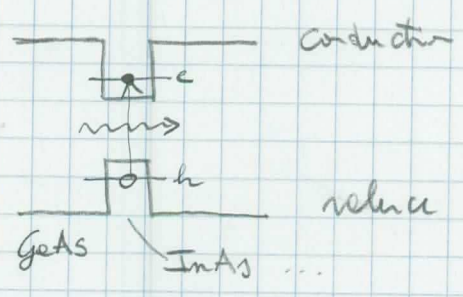 conduction
e
h
valence
GaAs
InAs ...